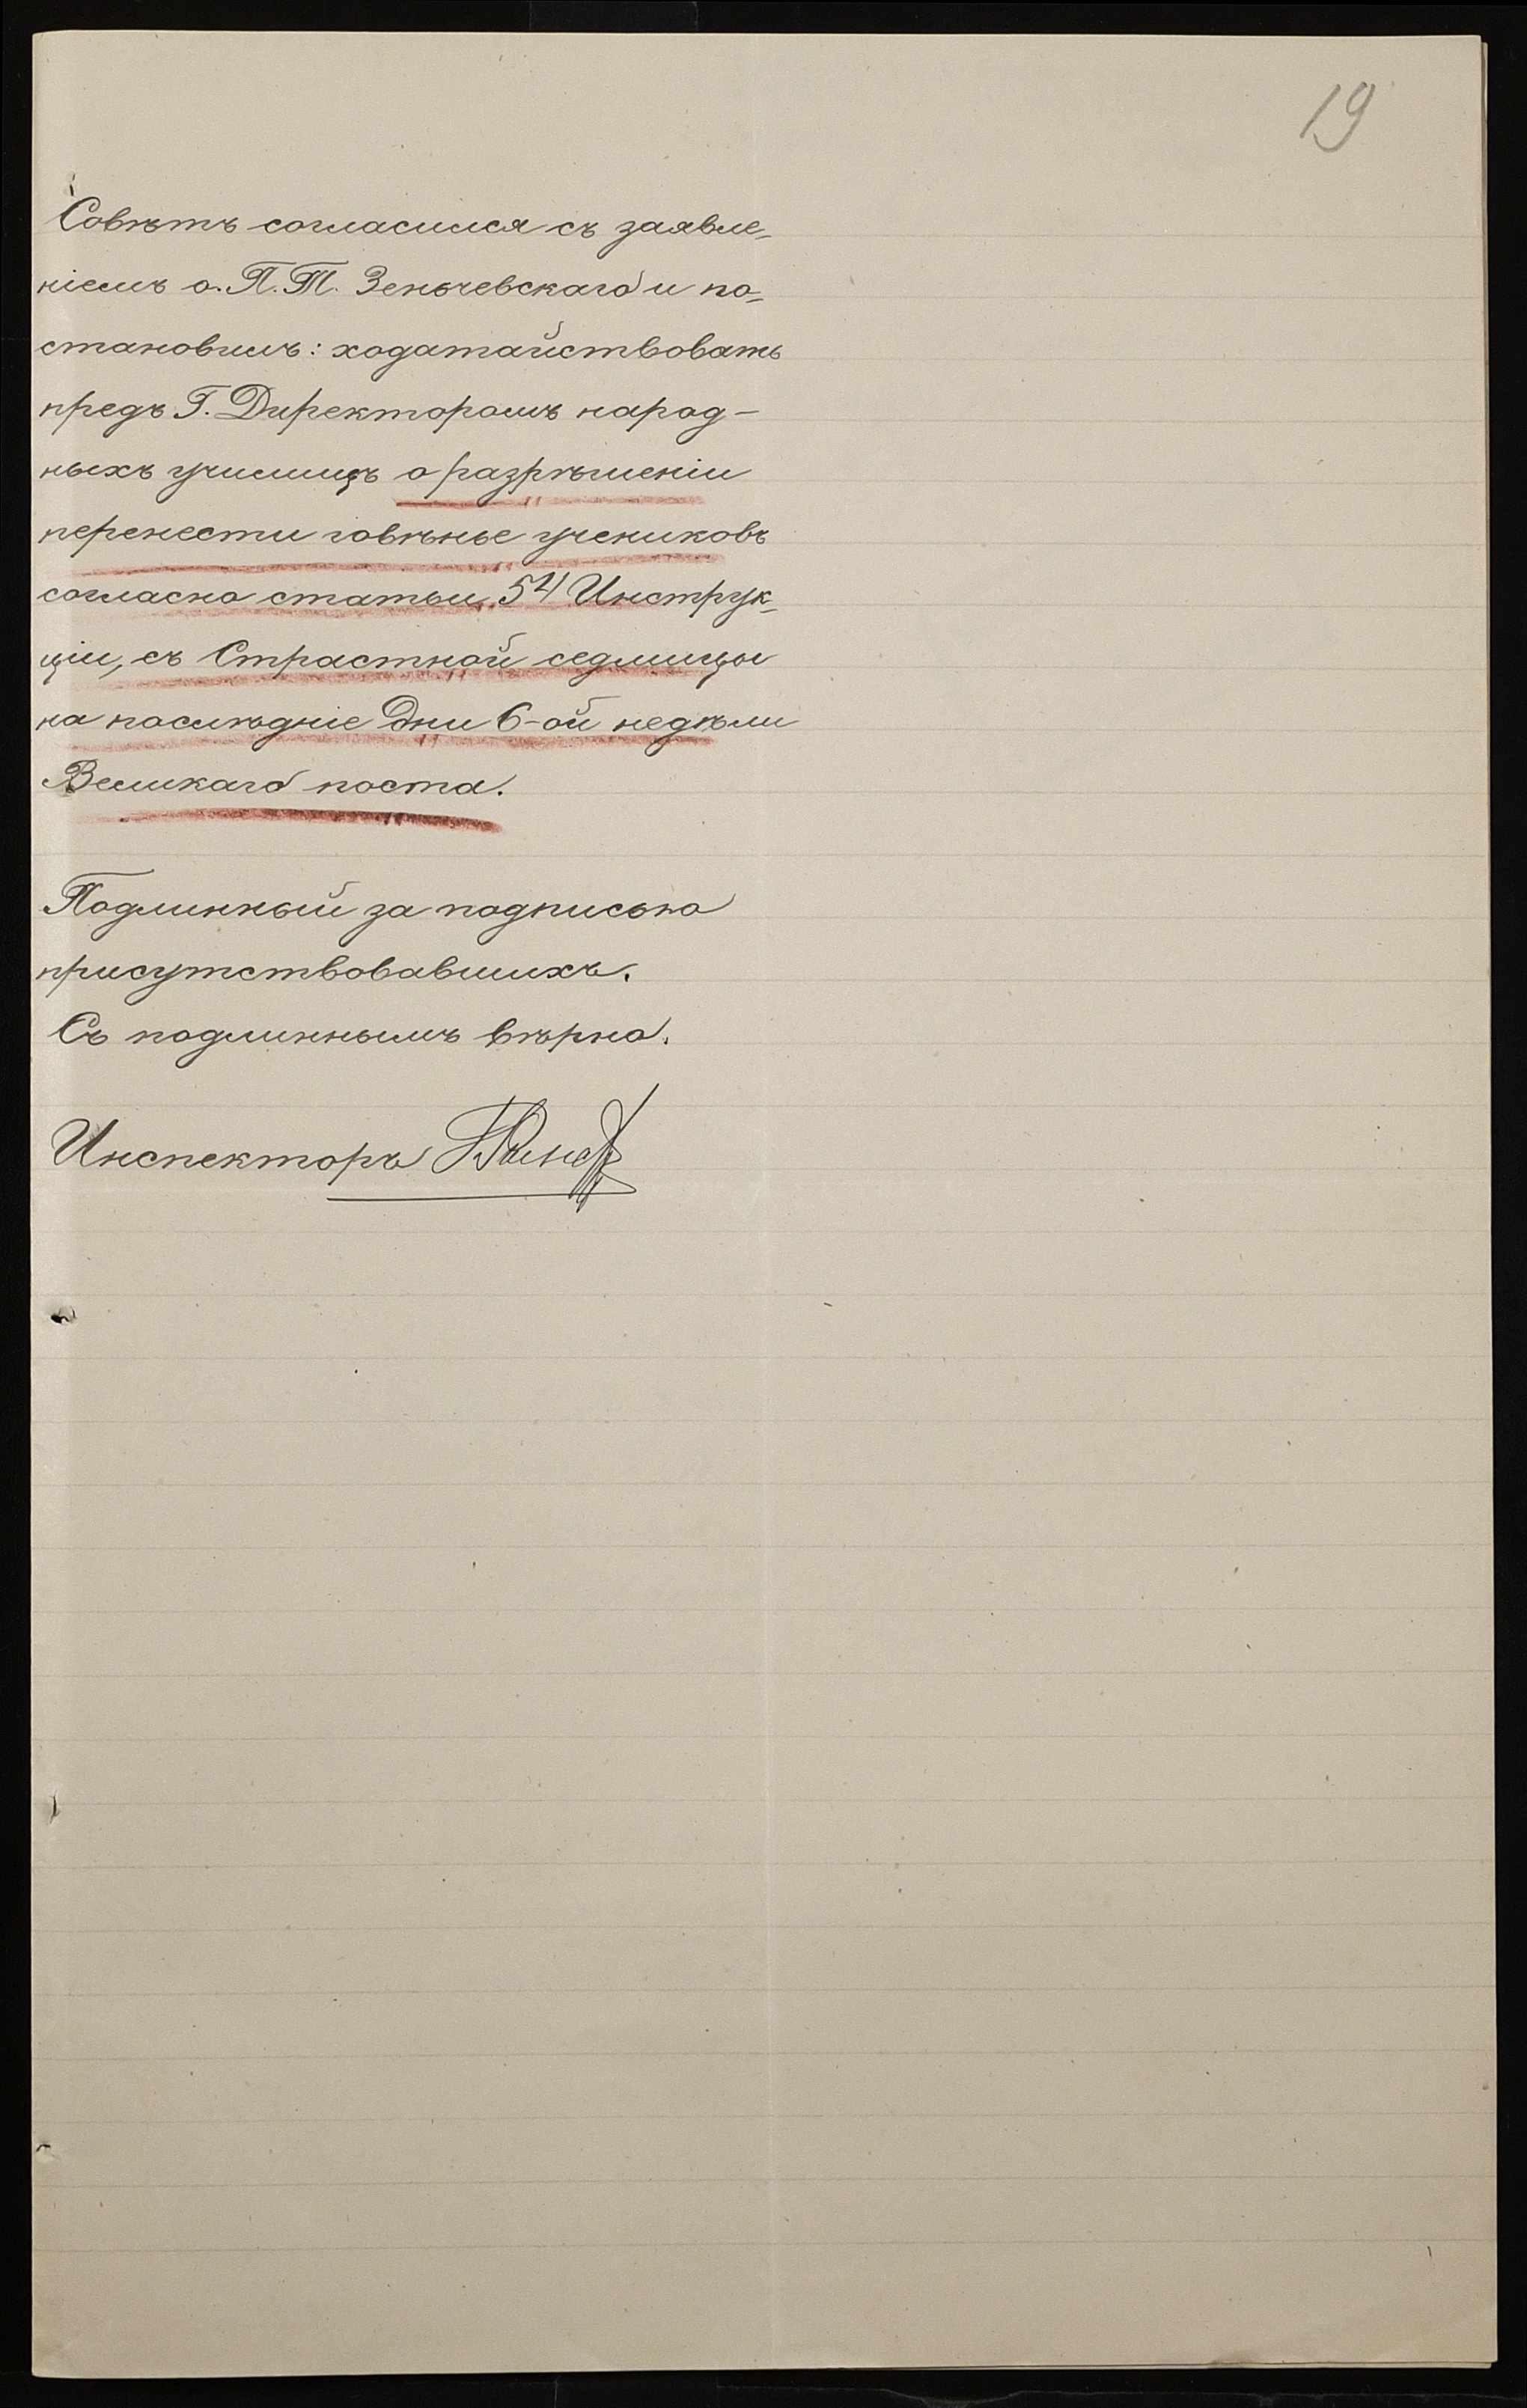 19
Совѣтъ согласился съ заявле-
ніемъ о. П. Т. Зеньчевскаго и по-
становилъ: ходатайствовать
предъ Г. Директоромъ народ-
ныхъ училищъ о разрѣшеніи
перенести говѣнье учениковъ
согласно статьи 54 Инструк-
ціи, съ Страстной седмицы
на послѣдніе дни 6-ой недѣли
Великаго поста.
Подлинный за подписью
присутствовавшихъ.
Съ подлиннымъ вѣрно.
Инспекторъ